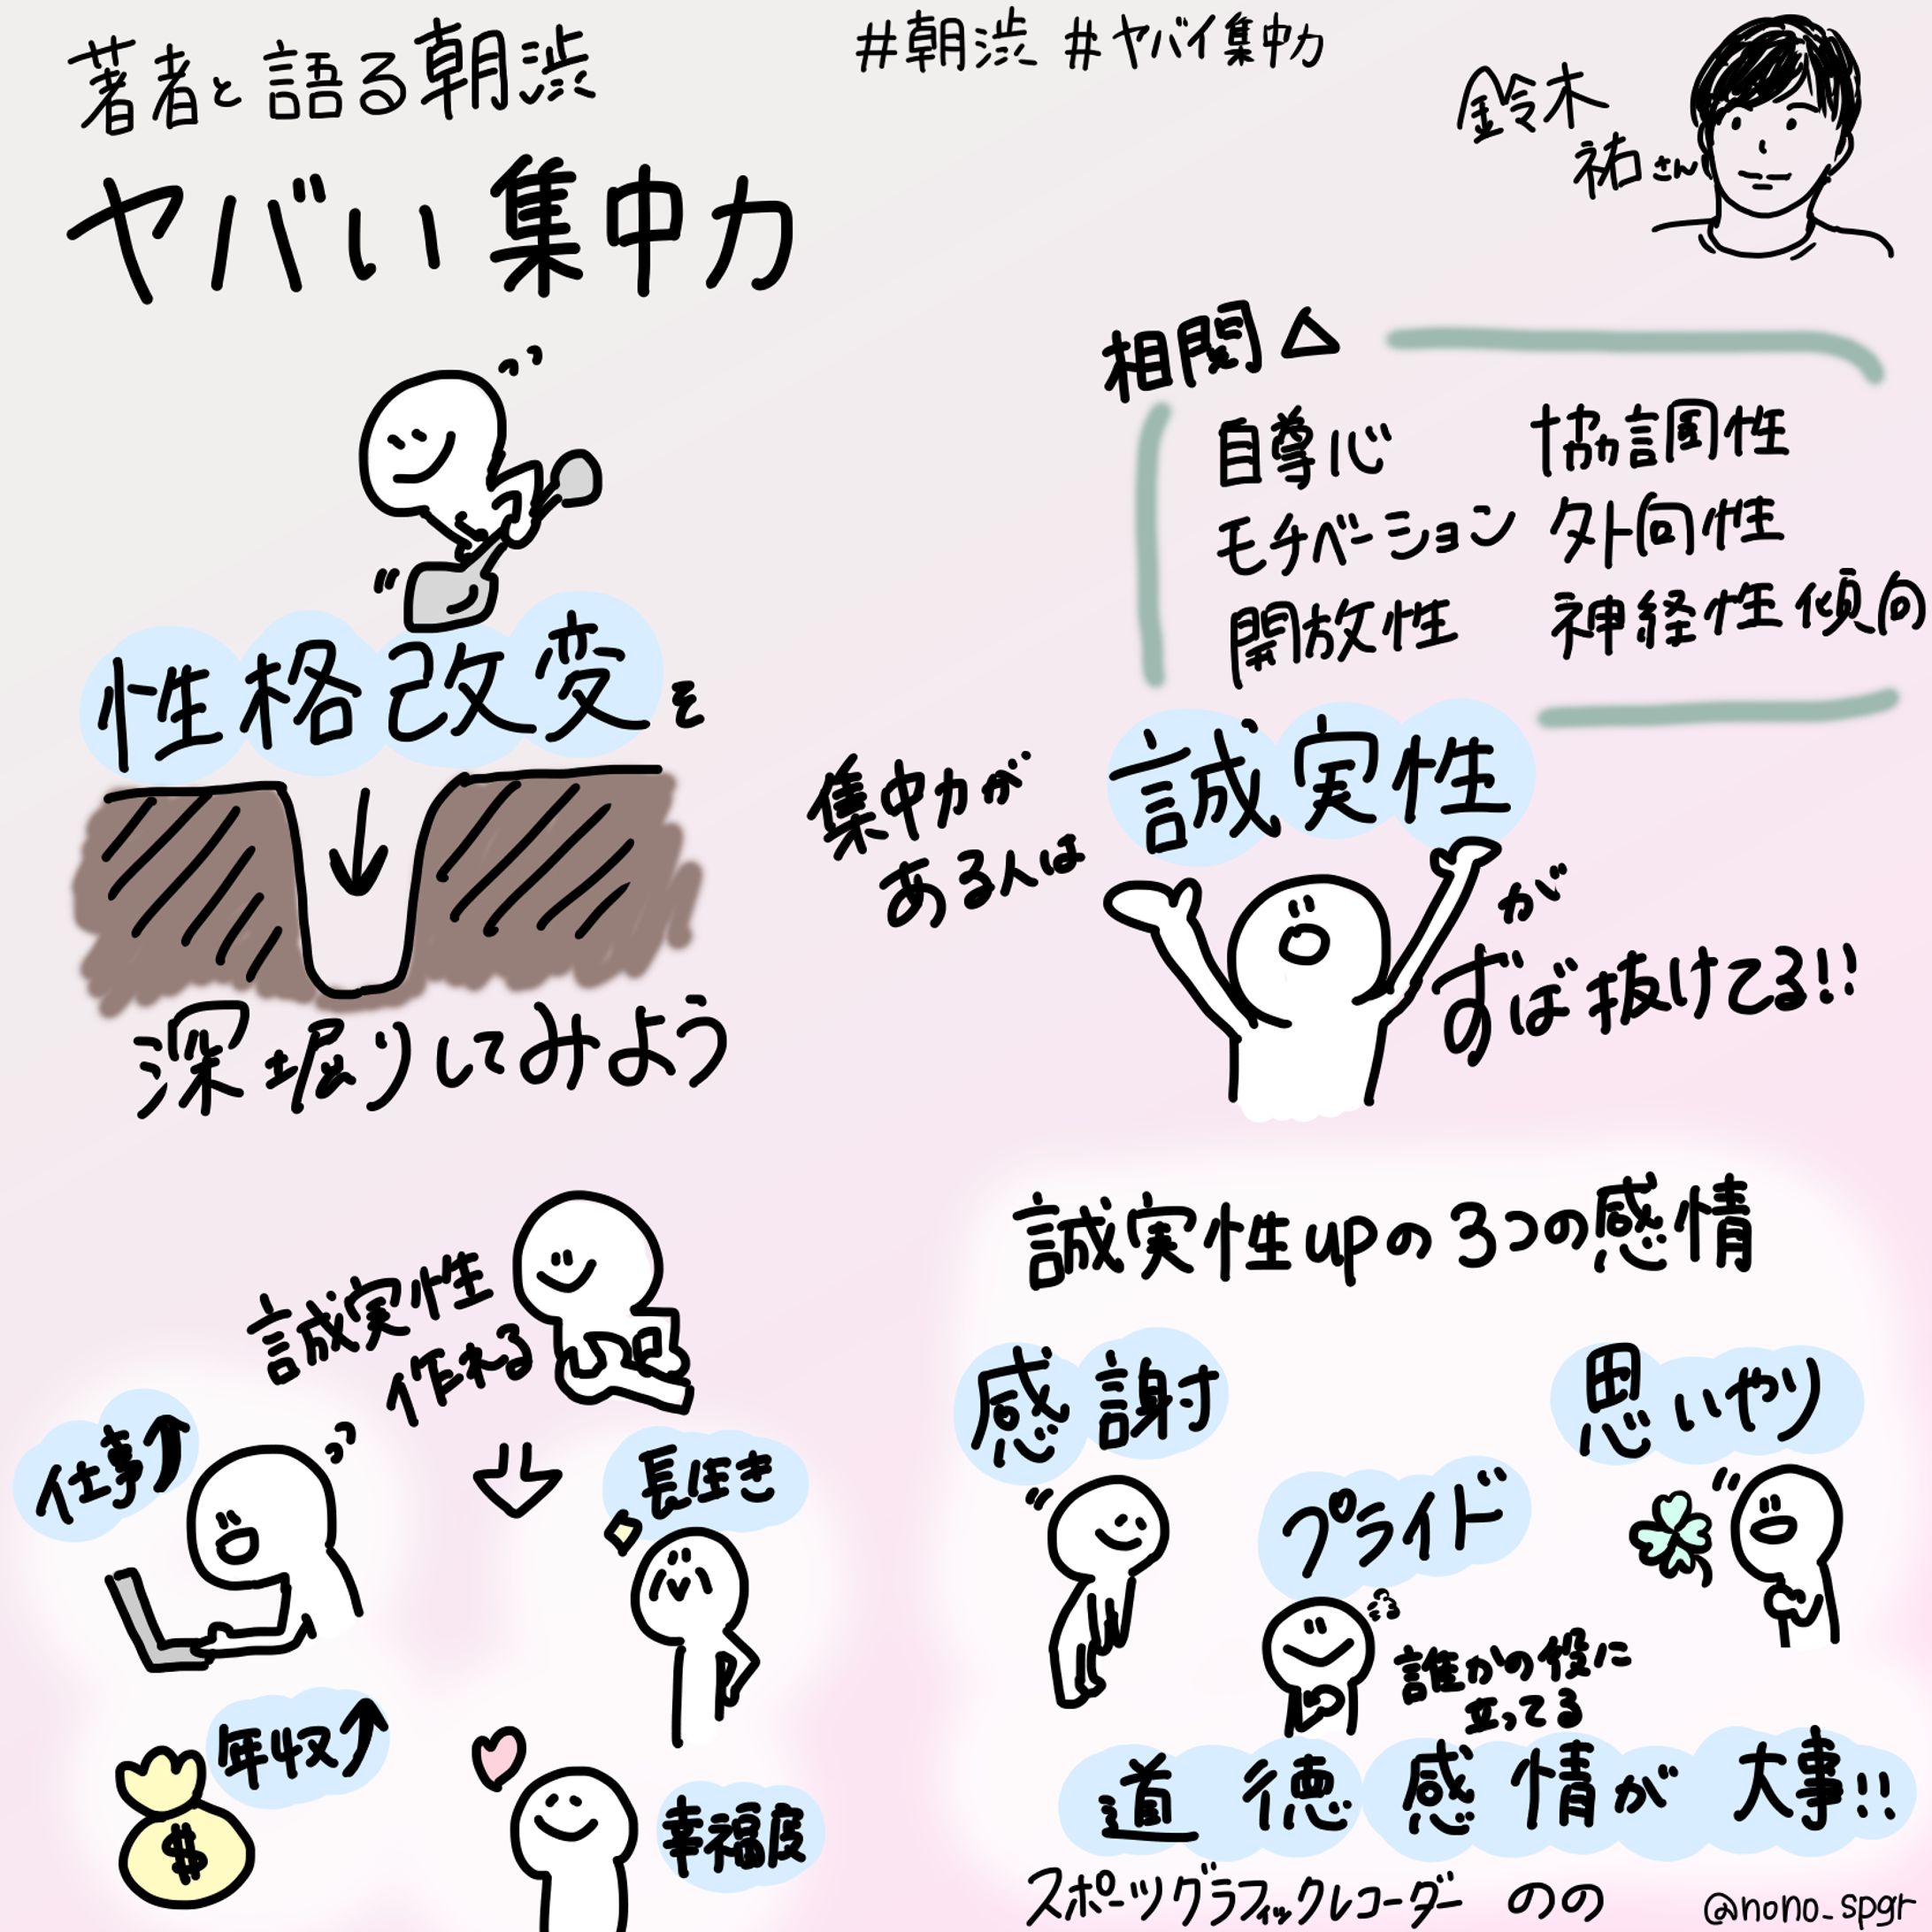 著者と語る朝渋
#朝渋 #ヤバイ集中力
ヤバい集中力
鈴木
祐さん
性格改変を
深堀りしてみよう
相関△
自尊心 協調性
モチベーション 外向性
開放性 神経性傾向
集中力が
ある人は
誠実性
が
ずば抜けてる!!
誠実性
作れる
仕事↑
長生き
年収↑
$
幸福度
誠実性upの3つの感情
感謝
思いやり
プライド
誰かの役に
立ってる
道徳感情が大事!!
スポーツグラフィックレコーダー のの
@nono_spgr